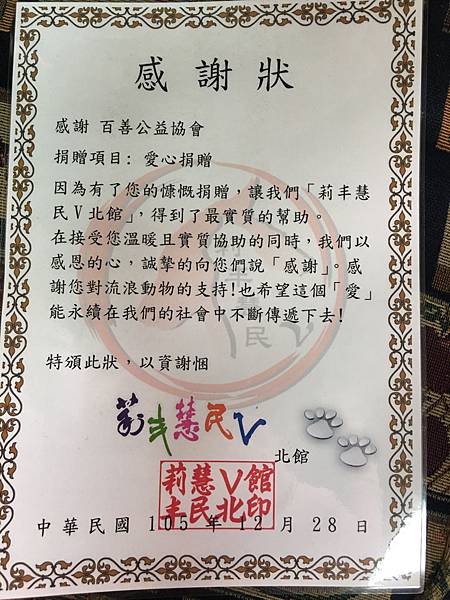 感謝狀
感謝 百善公益協會
捐贈項目: 愛心捐贈
因為有了您的慷慨捐贈，讓我們「莉丰慧
民V北館」，得到了最實質的幫助。
在接受您溫暖且實質協助的同時，我們以
感恩的心，誠摯的向您們說「感謝」。感
謝您對流浪動物的支持!也希望這個「愛」
能永續在我們的社會中不斷傳遞下去!
特頒此狀，以資謝悃
莉丰慧民V
北館
莉慧V館
丰民北印
中華民國 105 年 12 月 28 日